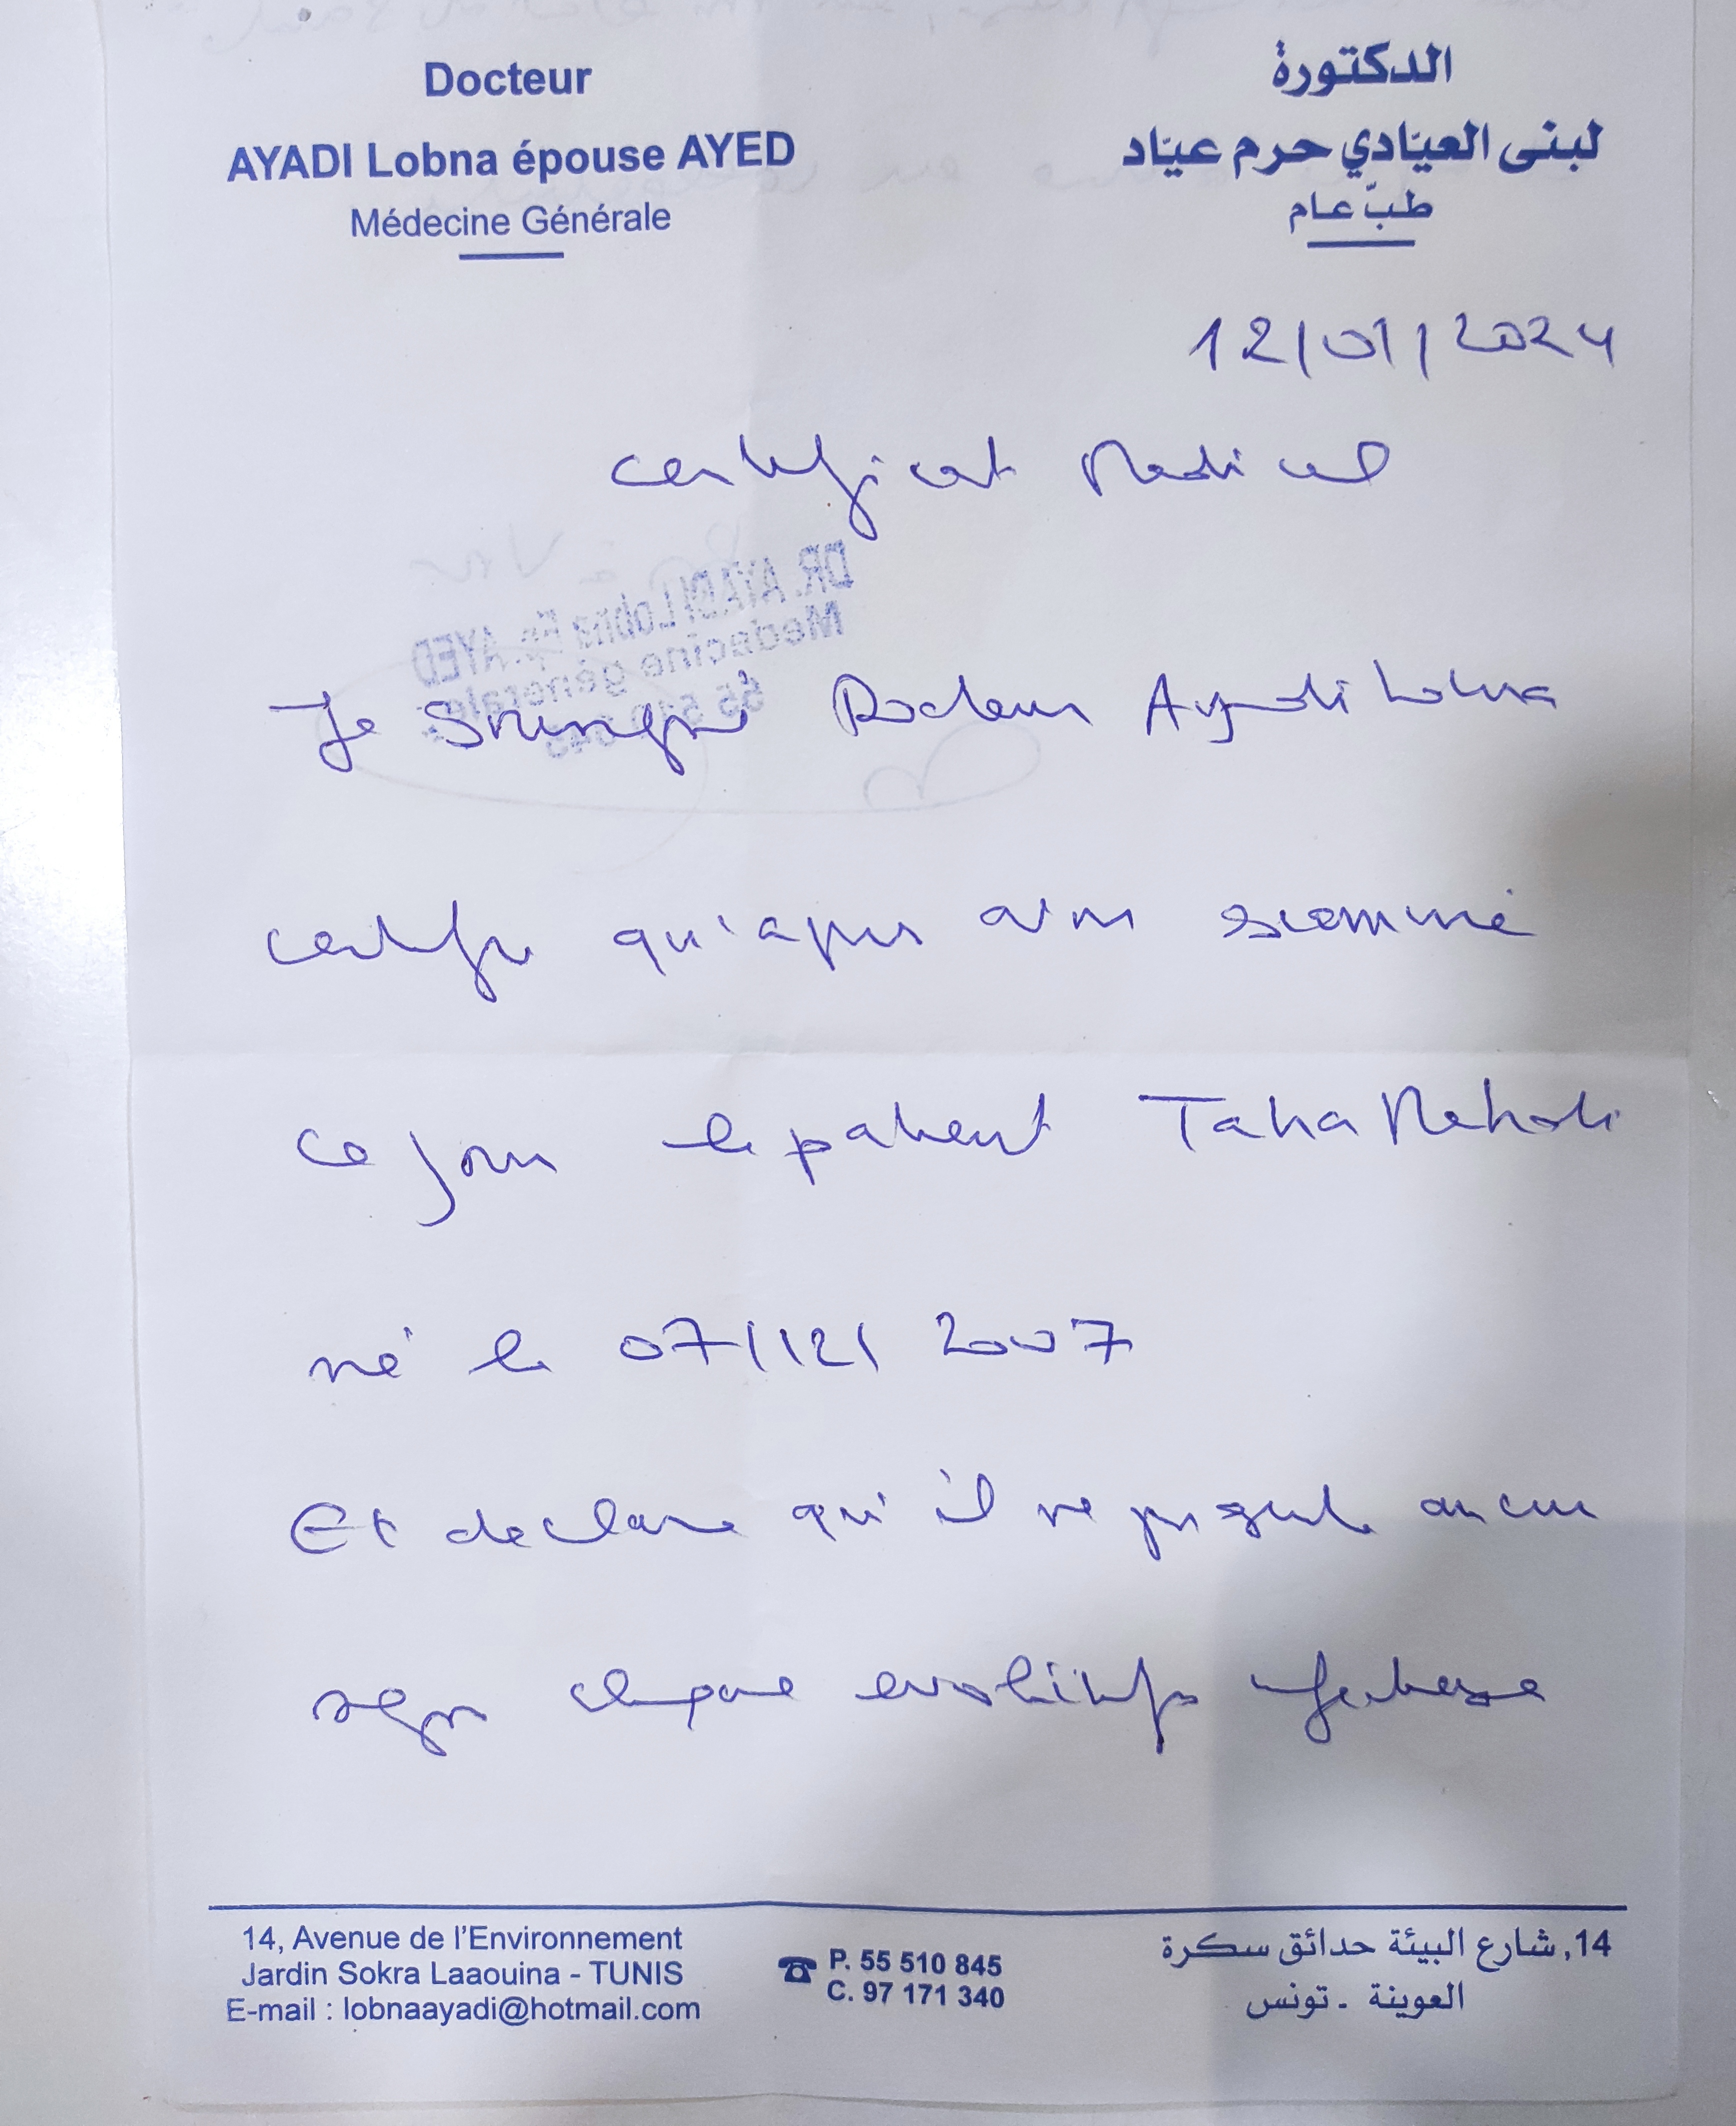 Docteur
AYADI Lobna épouse AYED
Médecine Générale
الدكتورة
لبنى العيّادي حرم عيّاد
طبّ عام
12/01/2024
Certificat Medical
DR. AYADI Lobna Ep. AYED
Medecine générale
Je Soussigné Docteur Ayadi Lobna
certifie qu'apres avoir examiné
ce jour le patient Taha Mehdi
né le 07/12/2007
Et declare qu'il ne presente aucun
signe clinique evolutif
14, Avenue de l'Environnement
Jardin Sokra Laaouina - TUNIS
E-mail : lobnaayadi@hotmail.com
P. 55 510 845
C. 97 171 340
14, شارع البيئة حدائق سكرة
العوينة - تونس